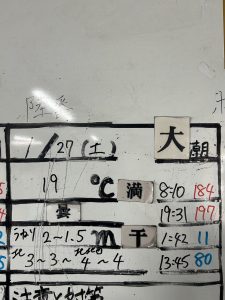 1/27(土) 大潮
19 ℃ 満 8:10 184
曇 19:31 197
うねり 2~1.5 m 干 1:42 11
北 3~3~北北西 4~4 13:45 80
注意と対策